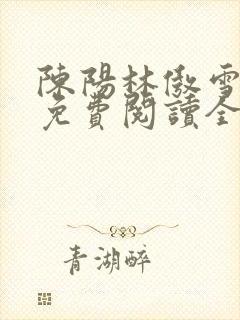 陳陽林傲雪
免費閱讀全
青湖醉